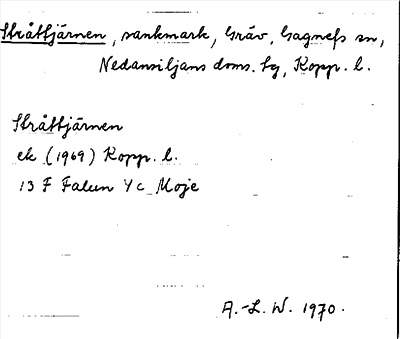 Stråttjärnen, sankmark, Gräv, Gagnefs sn,
Nedansiljans doms. tg, Kopp. l.
Stråttjärnen
ek (1969) Kopp. l.
13 F Falun 4 c Moje
A.-L. W. 1970.